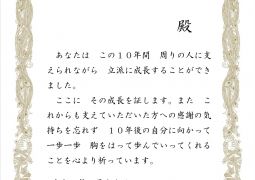 殿
あなたは この１０年間 周りの人に支
えられながら 立派に成長することができ
ました。
ここに その成長を証します。また こ
れからも支えていただいた方への感謝の気
持ちを忘れず １０年後の自分に向かって
一歩一歩 胸をはって歩んでいってくれる
ことを心より祈っています。